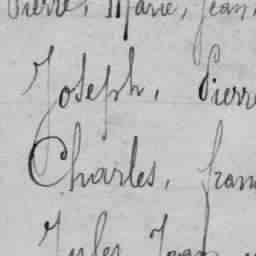 Pierre, Marie, Jean,
Joseph, Pierre
Charles, fran
Jules, Jean